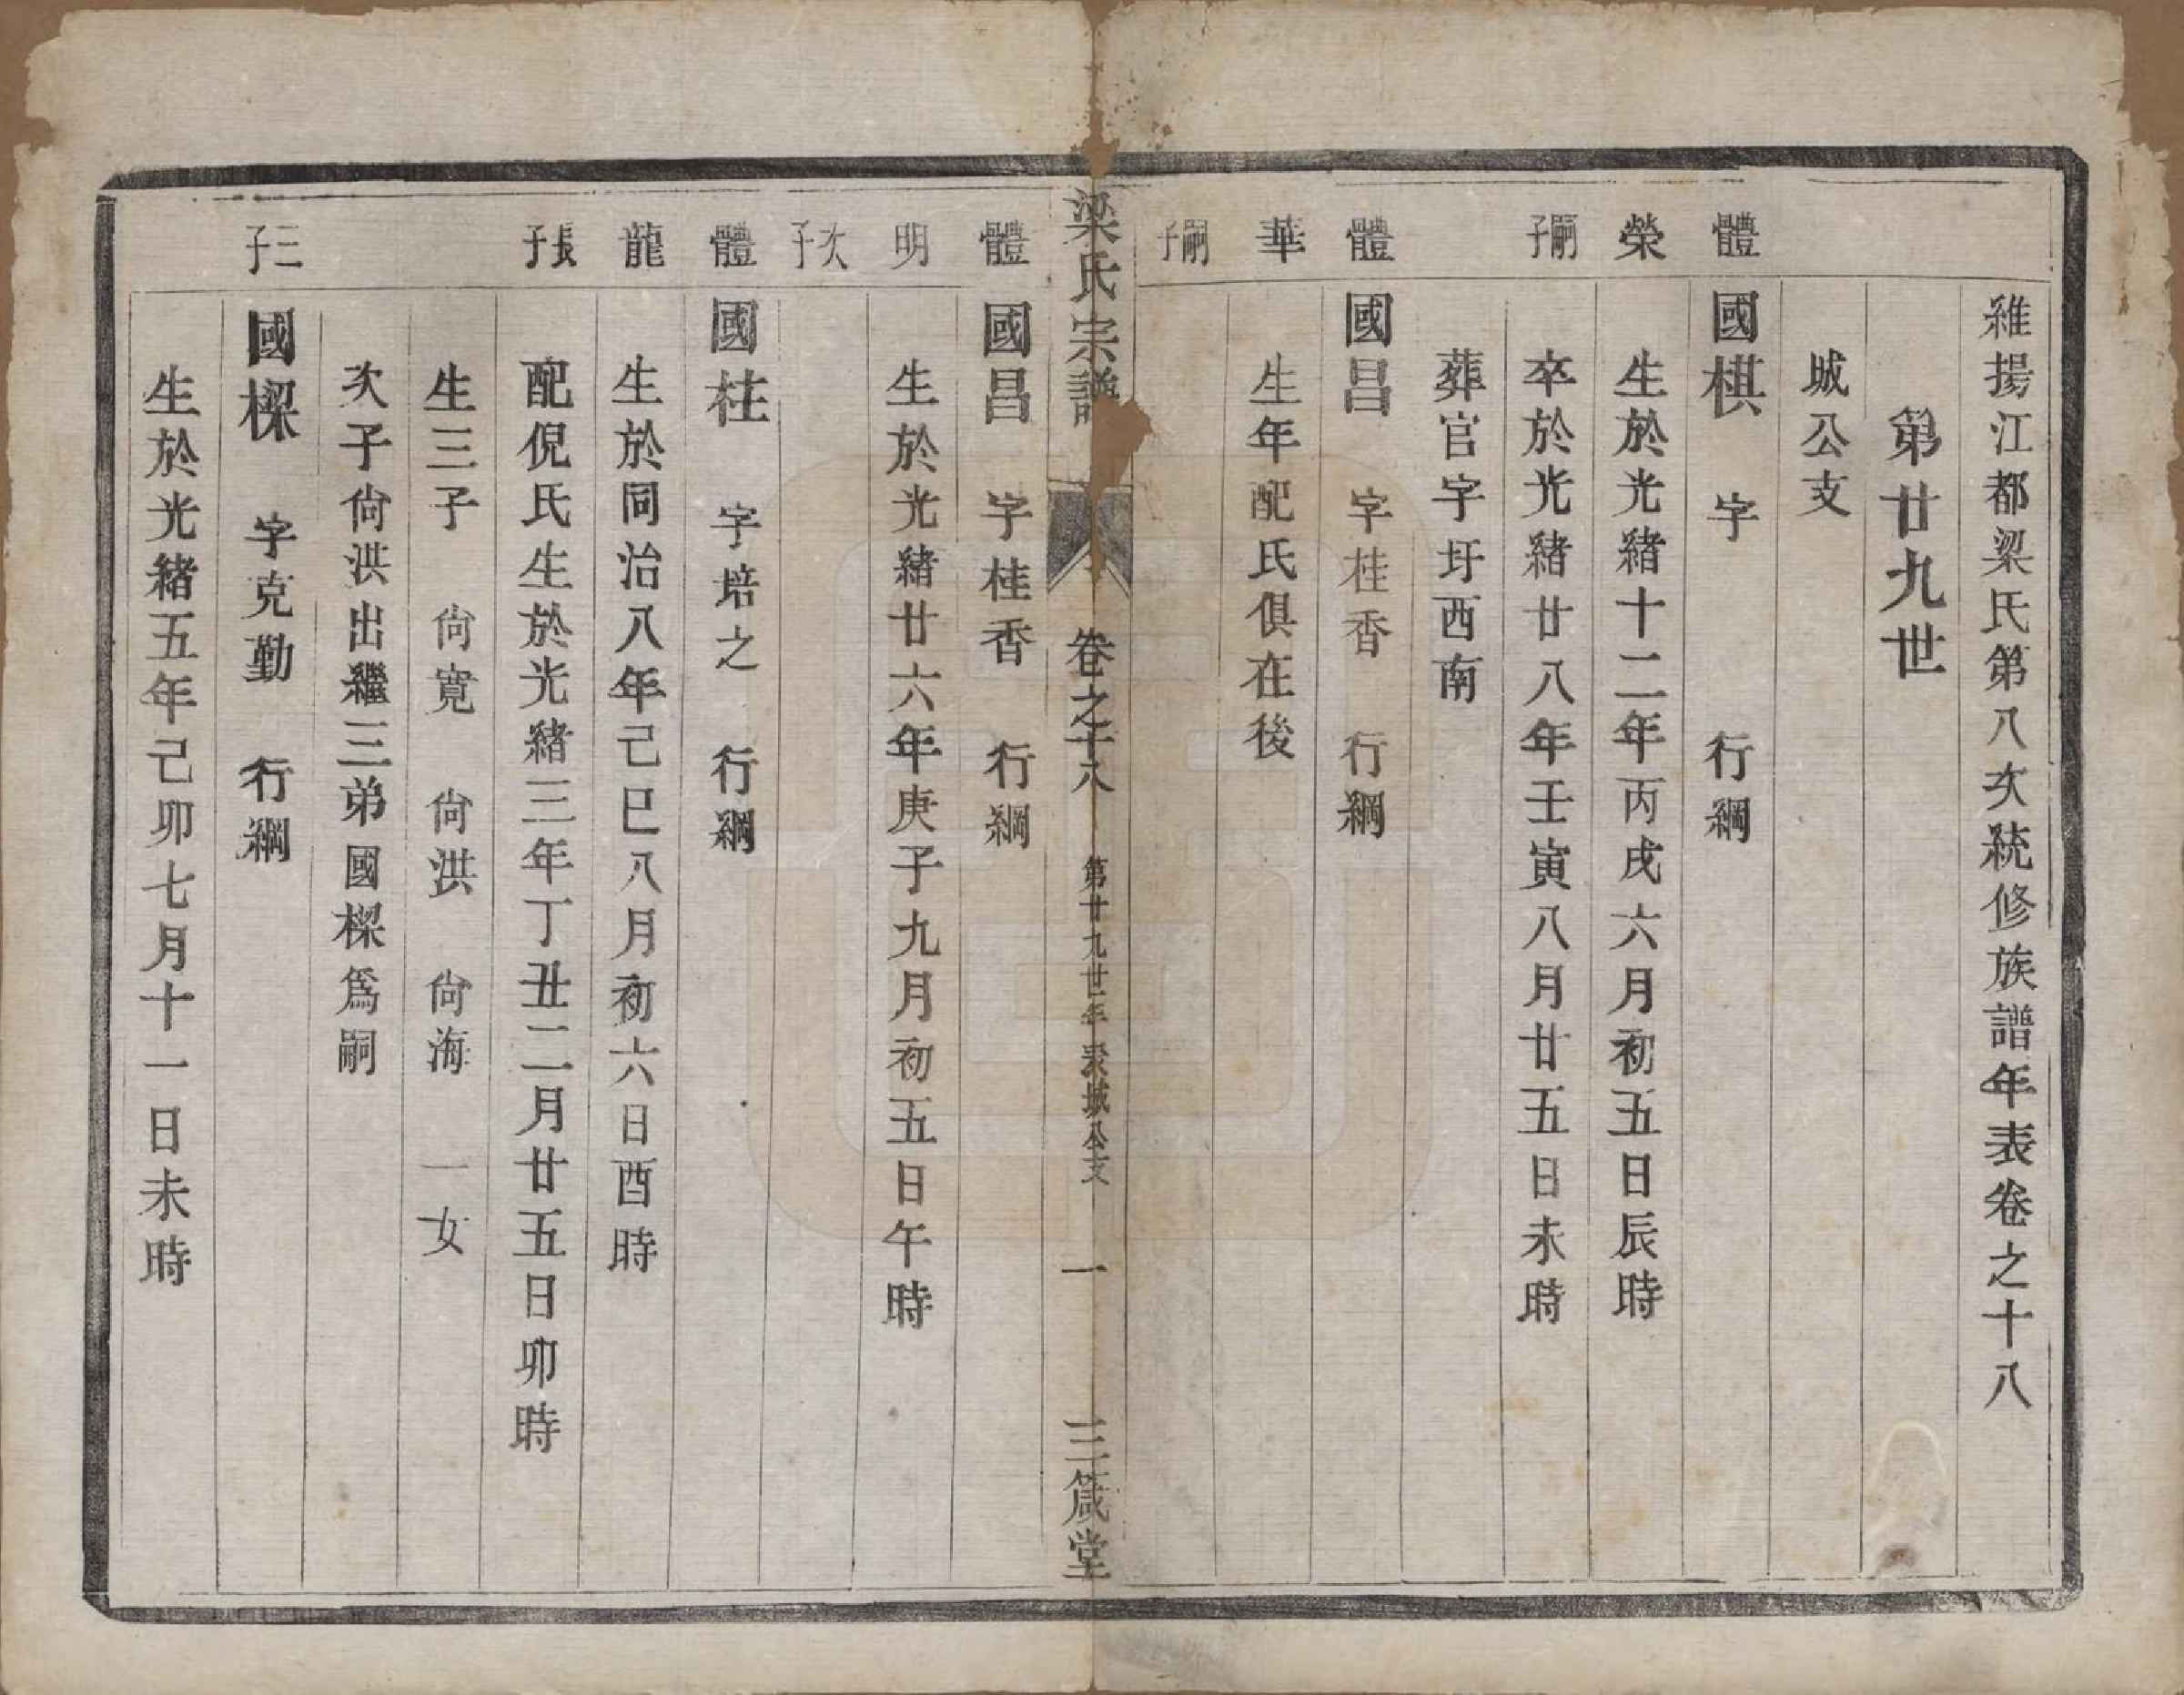 維揚江都梁氏第八次統修族譜年表卷之十八
第廿九世
城公支
體榮嗣子
國棋　字　　行綱
生於光緒十二年丙戌六月初五日辰時
卒於光緒廿八年壬寅八月廿五日未時
葬官字圩西南
體華嗣子
國昌　字桂香　行綱
生年配氏俱在後
梁氏宗譜　卷之十八　第廿九世年表城公支　一　三箴堂
體明次子
國昌　字桂香　行綱
生於光緒廿六年庚子九月初五日午時
體龍長子
國柱　字培之　行綱
生於同治八年己巳八月初六日酉時
配倪氏生於光緒三年丁丑二月廿五日卯時
生三子　尙寬　尙洪　尙海　一女
次子尙洪出繼三弟國樑爲嗣
三子
國樑　字克勤　行綱
生於光緒五年己卯七月十一日未時